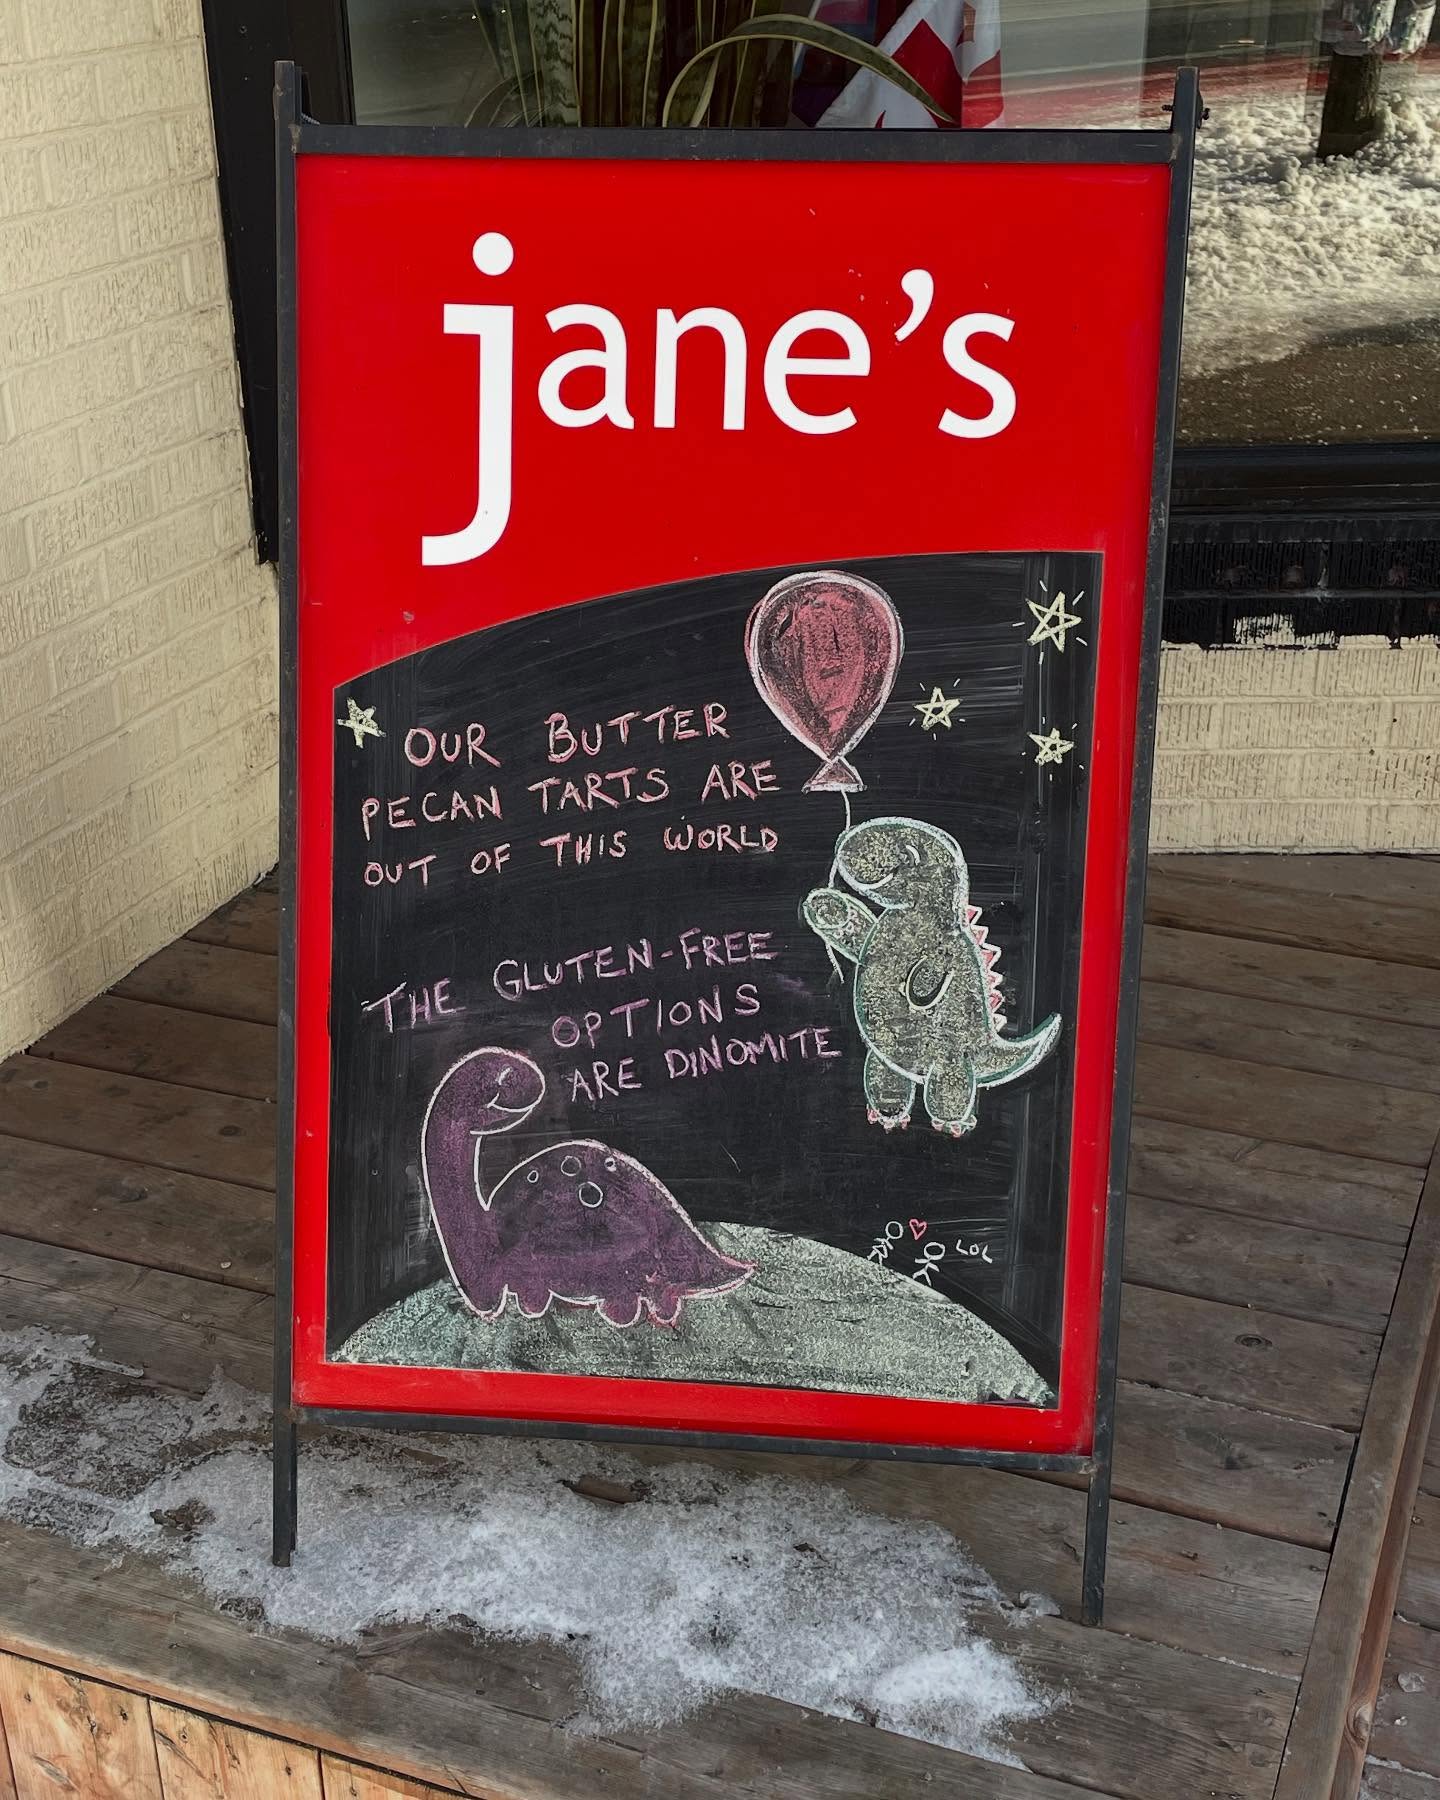 jane's
OUR BUTTER
PECAN TARTS ARE
OUT OF THIS WORLD
THE GLUTEN-FREE
OPTIONS
ARE DINOMITE
LOL